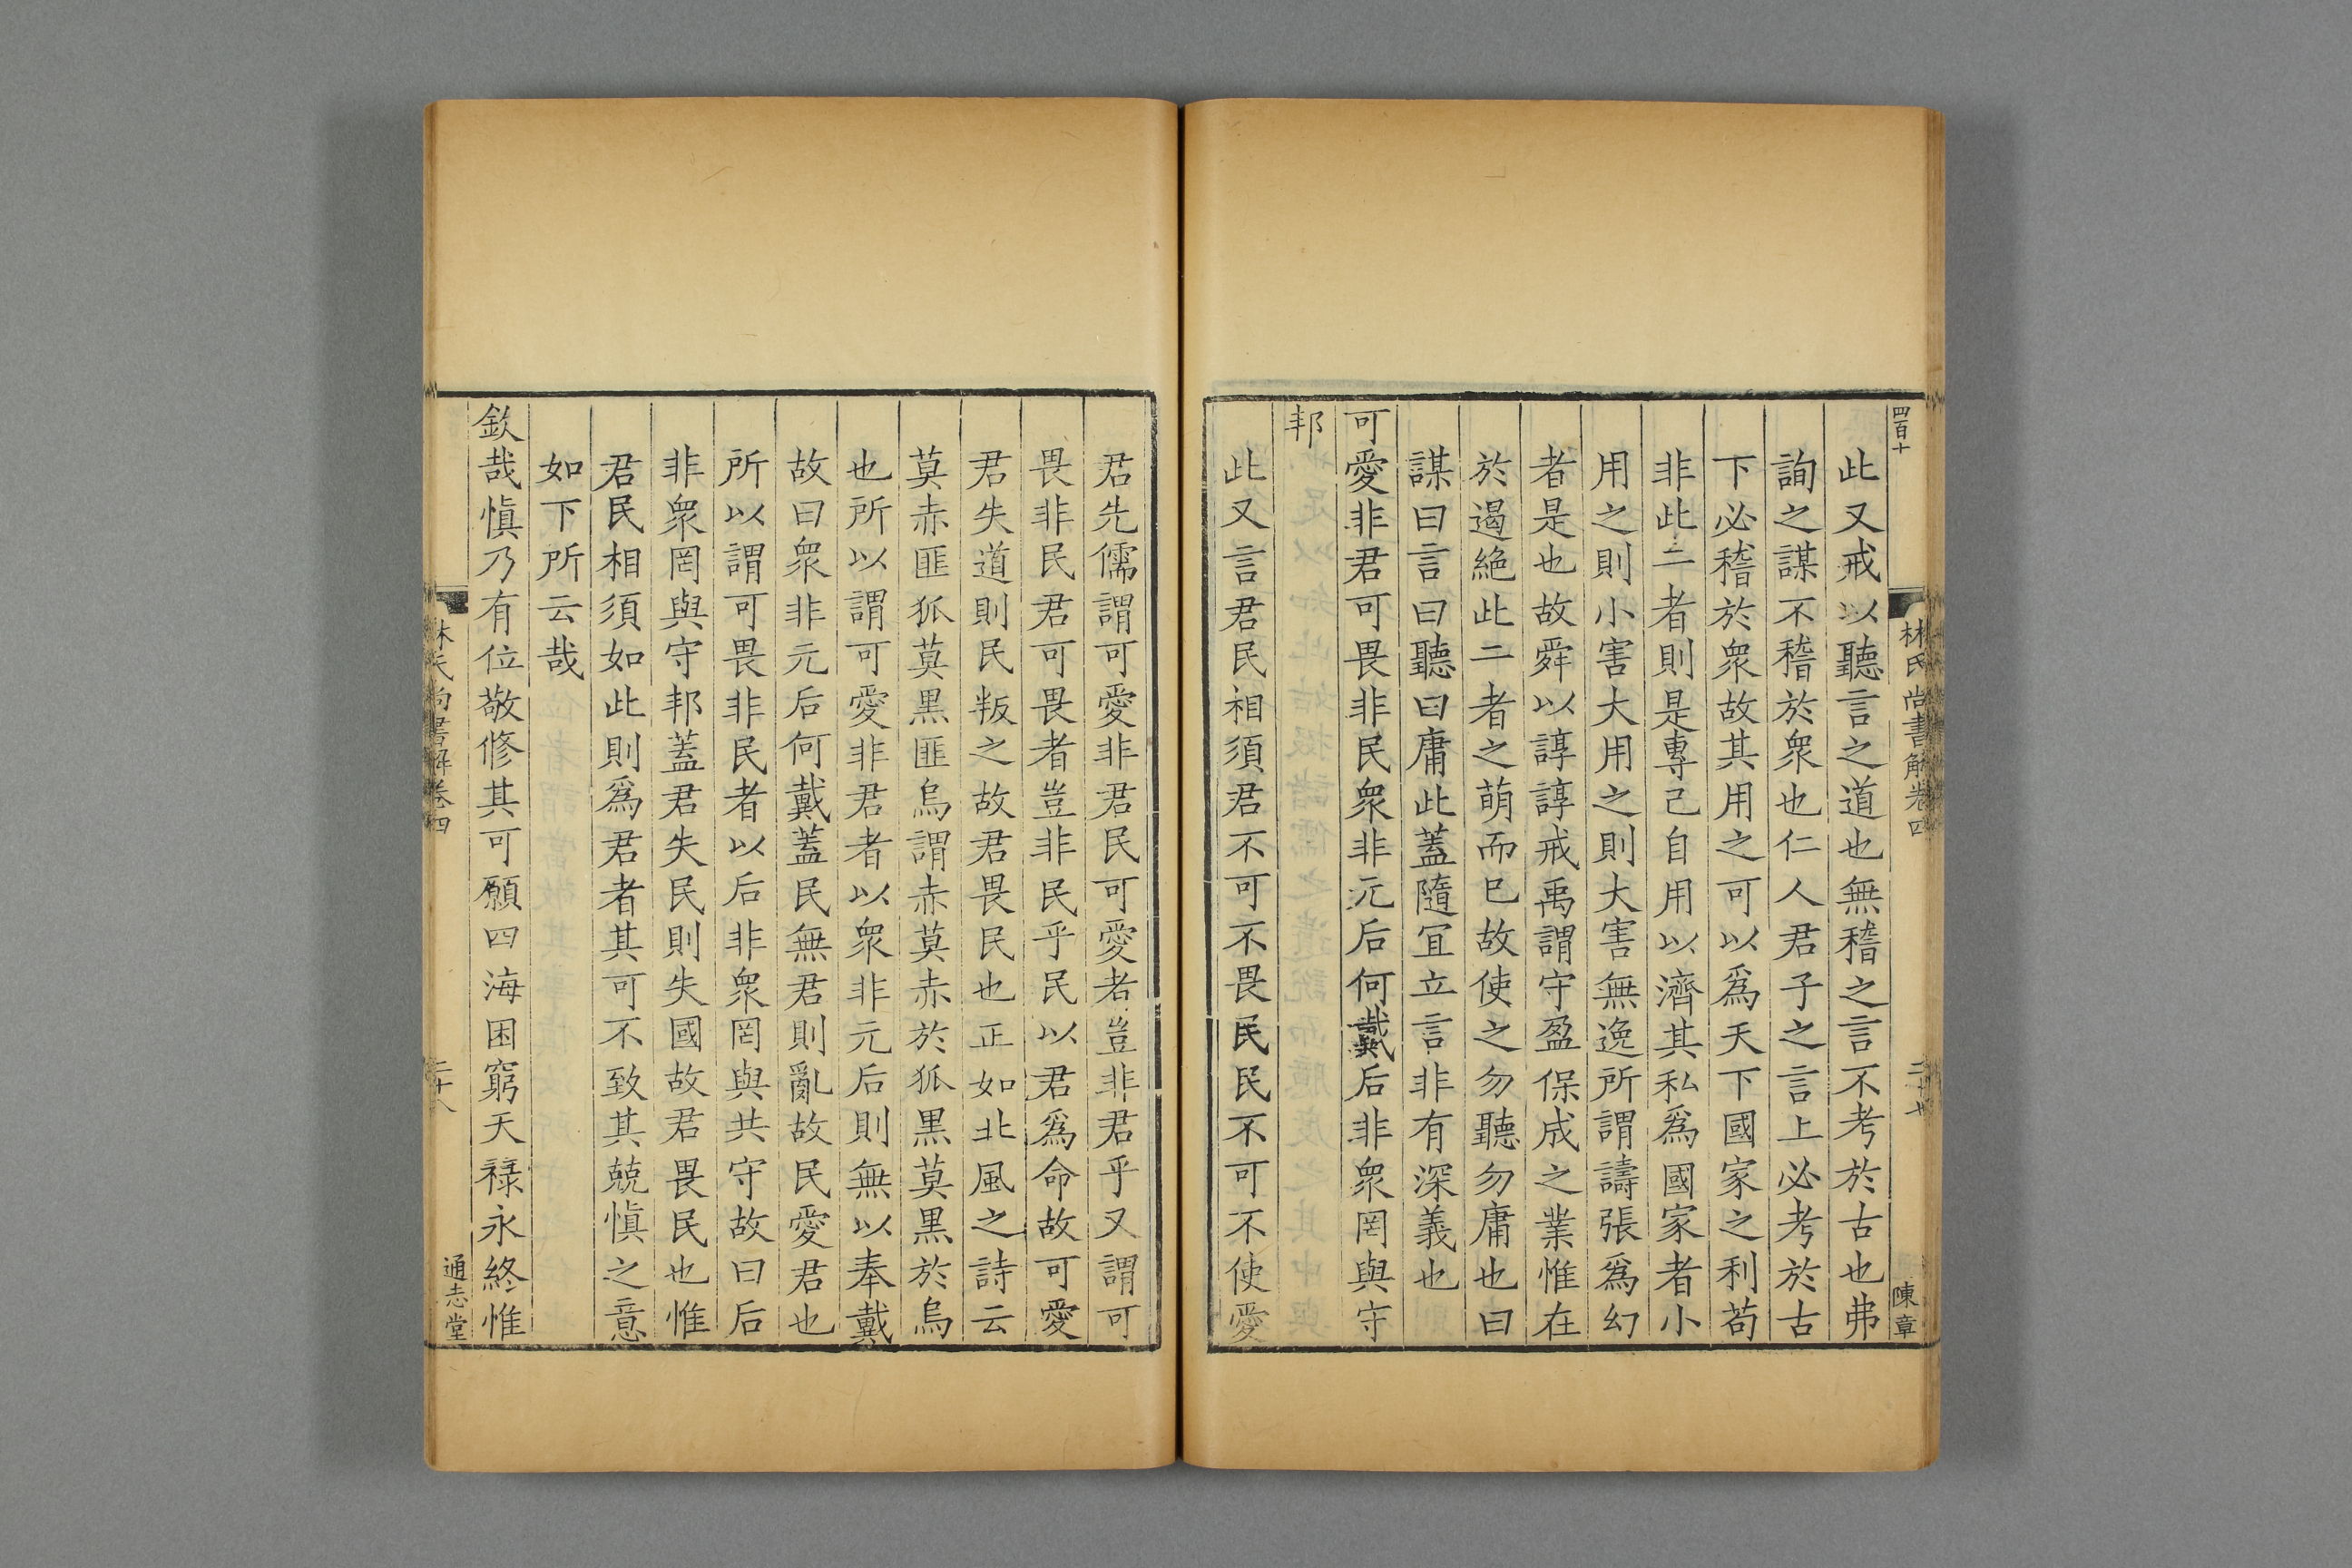 四百十
林氏尚書解卷四
二十七
陳章
此又戒以聽言之道也無稽之言不考於古也弗
詢之謀不稽於衆也仁人君子之言上必考於古
下必稽於衆故其用之可以爲天下國家之利苟
非此二者則是專己自用以濟其私爲國家者小
用之則小害大用之則大害無逸所謂譸張爲幻
者是也故舜以諄諄戒禹謂守盈保成之業惟在
於遏絶此二者之萌而巳故使之勿聽勿庸也曰
謀曰言曰聽曰庸此蓋隨冝立言非有深義也
可愛非君可畏非民衆非元后何戴后非衆罔與守
邦
此又言君民相須君不可不畏民民不可不使愛
君先儒謂可愛非君民可愛者豈非君乎又謂可
畏非民君可畏者豈非民乎民以君爲命故可愛
君失道則民叛之故君畏民也正如北風之詩云
莫赤匪狐莫黒匪烏謂赤莫赤於狐黒莫黒於烏
也所以謂可愛非君者以衆非元后則無以奉戴
故曰衆非元后何戴蓋民無君則亂故民愛君也
所以謂可畏非民者以后非衆罔與共守故曰后
非衆罔與守邦蓋君失民則失國故君畏民也惟
君民相須如此則爲君者其可不致其兢慎之意
如下所云哉
欽哉慎乃有位敬修其可願四海困窮天祿永終惟
林氏尚書解卷四
二十八
通志堂